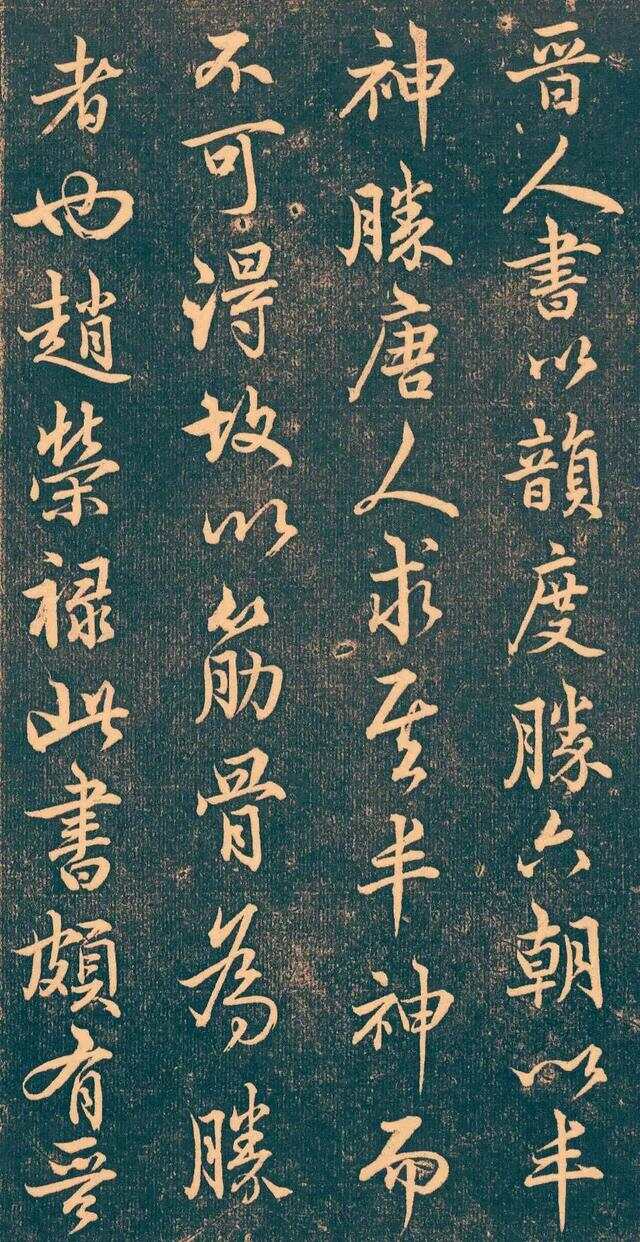 晉人書以韻度勝六朝以半
神勝唐人求其半神而
不可得故以筋骨為勝
者也趙榮祿此書頗有晉